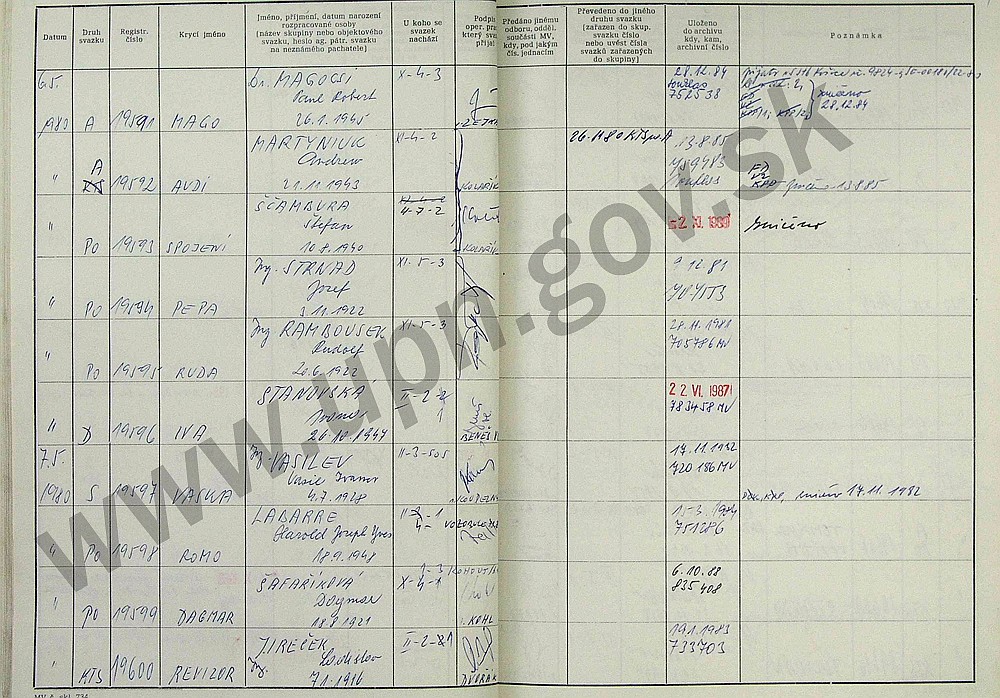 Datum
Druh svazku
Registr. číslo
Krycí jméno
Jméno, příjmení, datum narození
rozpracované osoby
(název skupiny nebo objektového
svazku, heslo ag. pátr. svazku
na neznámého pachatele)
U koho se
svazek
nachází
Podpis
oper. pra
který sva
přijal
Předáno jinému
odboru, odděl.
součásti MV,
kdy, pod jakým
čís. jednacím
Převedeno do jiného
druhu svazku
(zařazen do skup.
svazku číslo
nebo uvést čísla
svazků zařazených
do skupiny)
Uloženo
do archivu
kdy, kam,
archivní číslo
Poznámka
6.5.
1980 A 19591 MAGO
Dr. MAGOCSI
Paul Robert
26.1.1945
X-4-3
28.12.84
752538
zničeno
28.12.84
" A 19592 AUDI
MARTYNIUK
Andrew
21.11.1943
XI-4-2
KOLAŘÍK
13.8.85
759483
" PO 19593 SPOJENÍ
ŠČAMBURA
Štefan
10.8.1940
4-7-2
KOLAŘÍK
2. XI. 1989
zničeno
" PO 19594 PEPA
Ing. STRNAD
Jozef
3.11.1922
XI-5-3
9.12.81
" PO 19595 RUDA
Ing. RAMBOUSEK
Rudolf
20.6.1922
XI-5-3
28.11.1981
705786 MV
" D 19596 IVA
STANOVSKA
26.10.1947
II-2-2
BENEŠ
22. VI. 1987
783458 MV
7.5.
1980 S 19597 VASKA
Ing. VASILEV
Vasil Ivanov
4.7.1928
II-3-505
17.11.1982
720186 MV
zničeno 17.11.1982
" PO 19598 ROMO
LABARRE
Harold Joseph Yves
18.9.1948
15.3.1984
751286
" PO 19599 DAGMAR
ŠAFAŘÍKOVÁ
Dagmar
18.8.1921
X-4-1
6.10.88
835408
" KTS 19600 REVIZOR
JIREČEK
Ing. Ladislav
7.1.1916
II-2-1
DVOŘÁK
19.1.1983
733703
www.upn.gov.sk